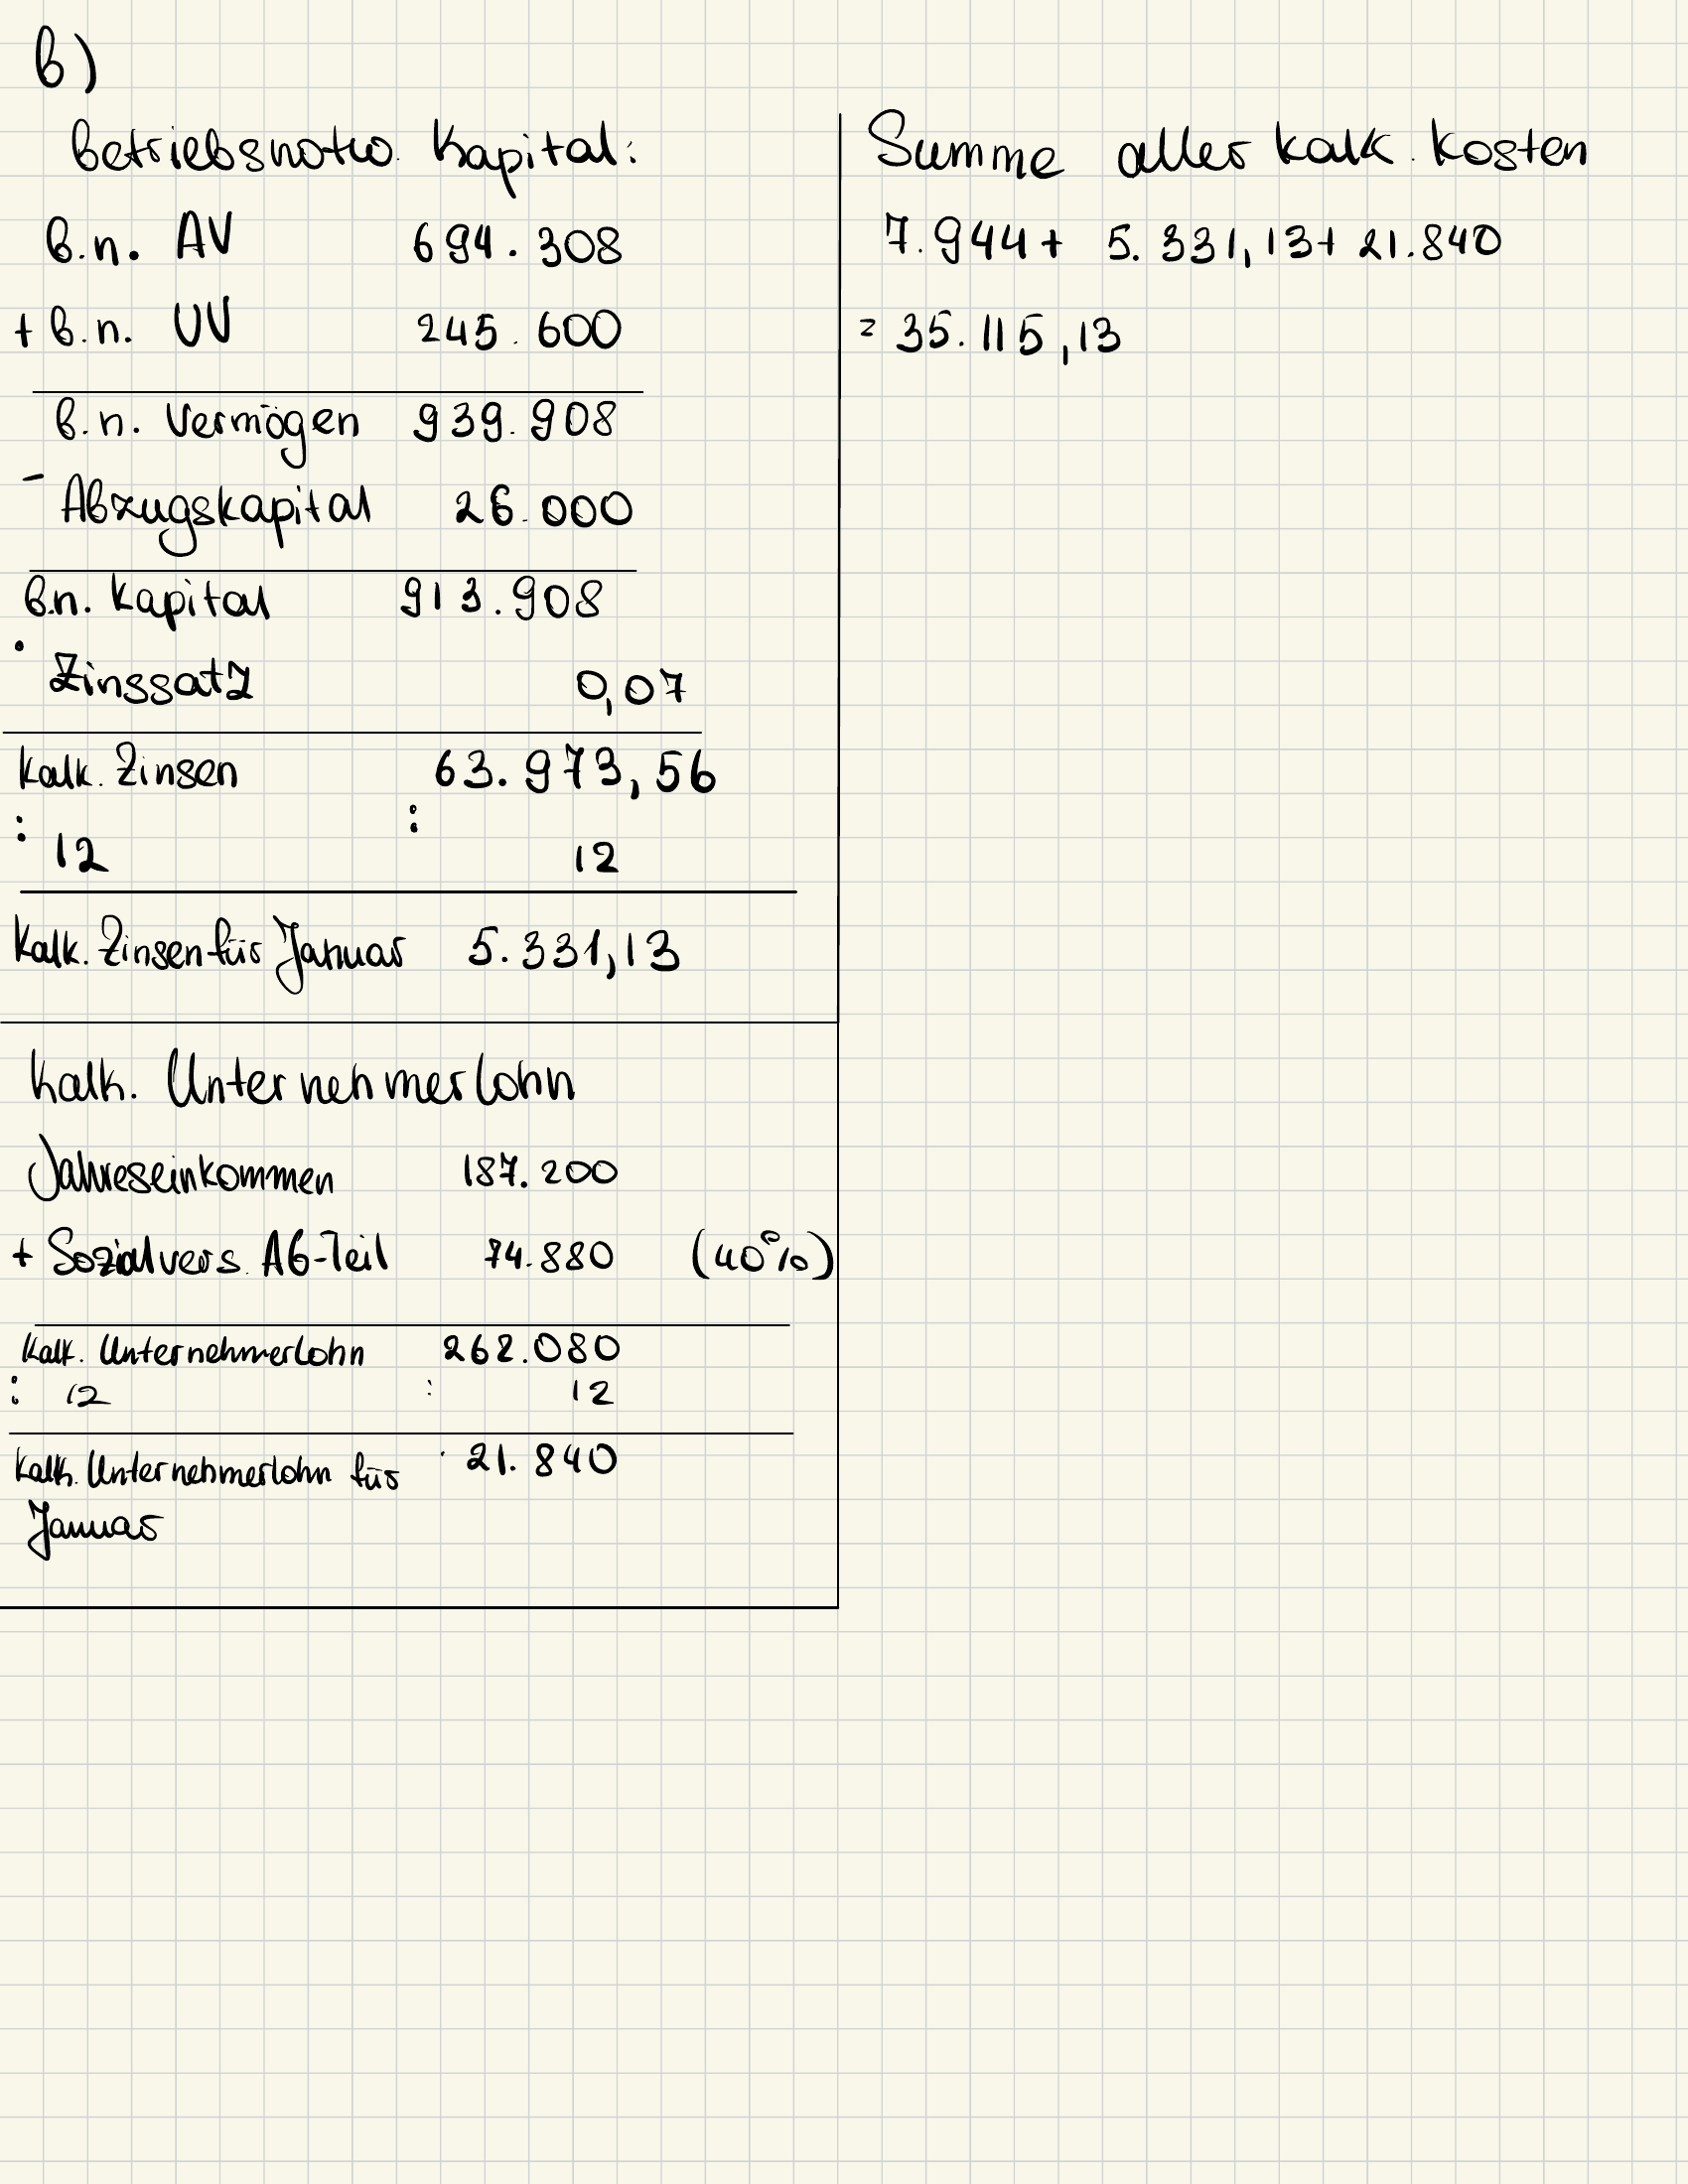 b)
Betriebsnotw. Kapital:
b.n. AV 694.308
+ b.n. UV 245.600
b.n. Vermögen 939.908
- Abzugskapital 26.000
b.n. Kapital 913.908
· Zinssatz 0,07
Kalk. Zinsen 63.973,56
: 12 : 12
Kalk. Zinsen für Januar 5.331,13
Kalk. Unternehmerlohn
Jahreseinkommen 187.200
+ Sozialvers. AG-Teil 74.880 (40%)
Kalk. Unternehmerlohn 262.080
: 12 : 12
Kalk. Unternehmerlohn für 21.840
Januar
Summe aller kalk. Kosten
7.944 + 5.331,13 + 21.840
= 35.115,13